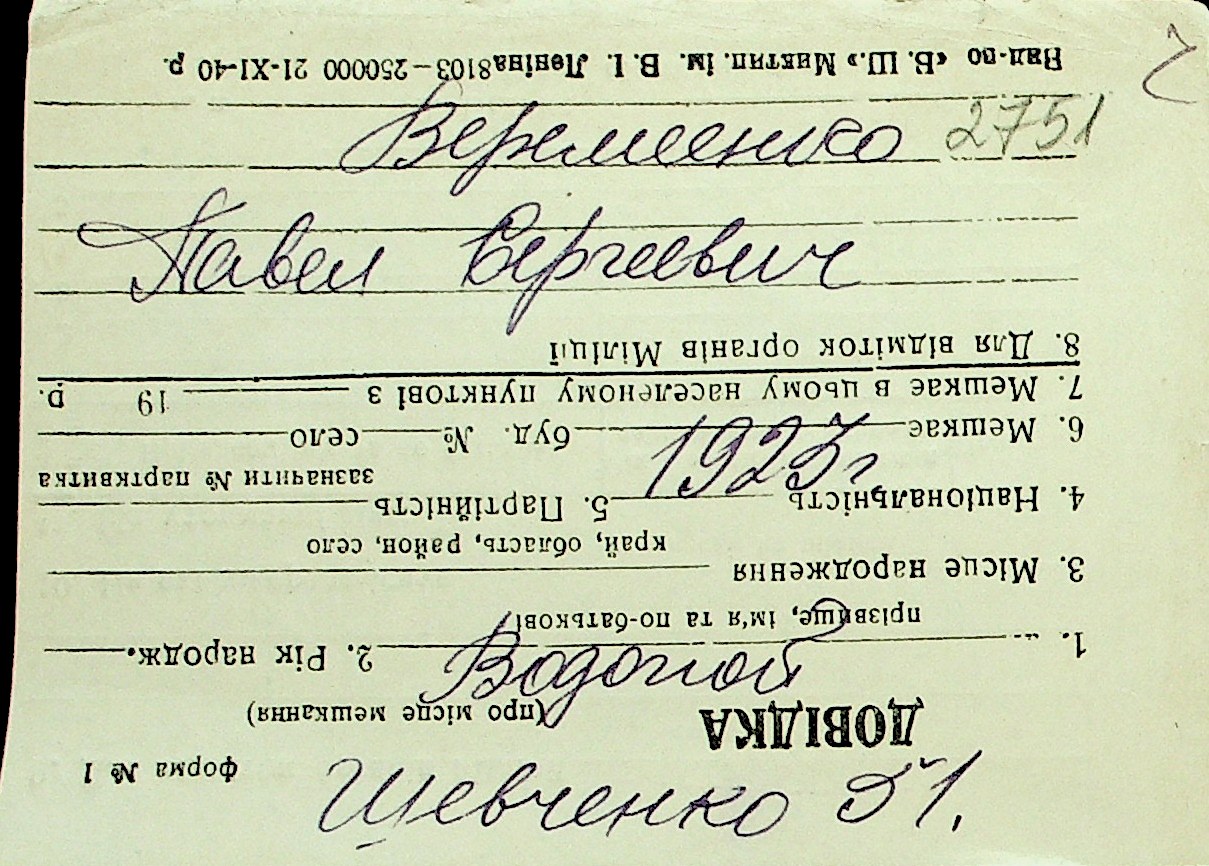 Веремеенко 2751
Павел Сергеевич
1923г
Водопой
Шевченко 51.
форма № 1
ДОВІДКА
(про місце мешкання)
1. 2. Рік народж.
прізвище, ім'я та по-батькові
3. Місце народження
край, область, район, село
4. Національність 5. Партійність
зазначити № партквитка
6. Мешкає буд. № село
7. Мешкає в цьому населеному пунктові з 19 р.
8. Для відміток органів Міліції
Вид-во «Б. Ш.» Миктип. ім. В. І. Леніна 8103—250000 21-XI-40 р.